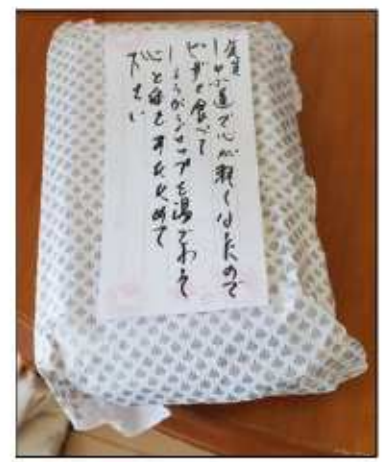 道で心が軽くなったので
ピザを食べて
しょうがシロップを湯でわって
心と体をあたためて
下さい